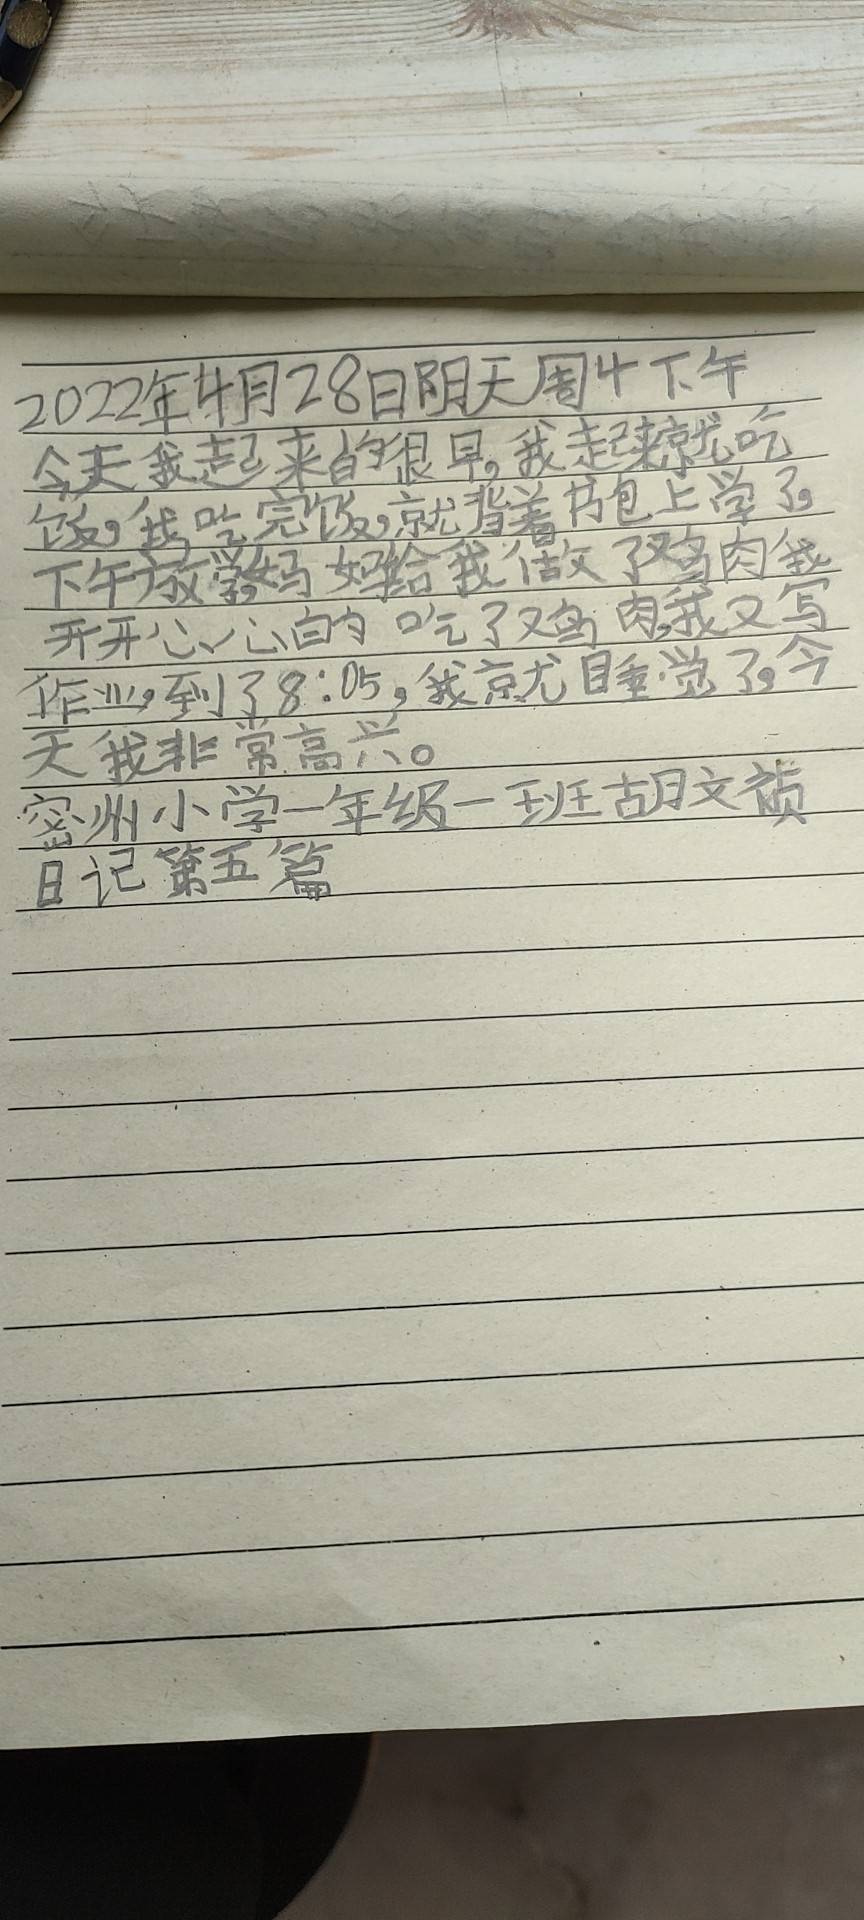 2022年4月28日阴天周4下午
今天我起来的很早。我起来就吃
饭。我吃完饭,就背着书包上学了。
下午放学妈妈给我做了鸡肉我
开开心心的吃了鸡肉,我又写
作业,到了8:05,我就睡觉了。今
天我非常高兴。
密州小学一年级一班胡文祯
日记第五篇